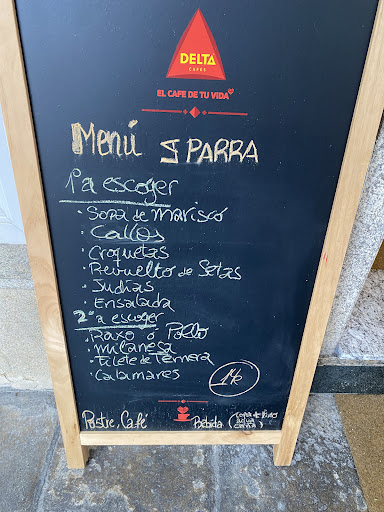 DELTA
CAFÉS
EL CAFE DE TU VIDA
Menú PARRA
1º a escoger
· Sopa de Marisco
· Callos
· Croquetas
· Revuelto de Setas
· Judías
· Ensalada
2º a escoger
· Raxo o Pollo
· milanesa
· Filete de Ternera
· Calamares
14
Postre, Café Bebida (copa de Vino
agua
caña)